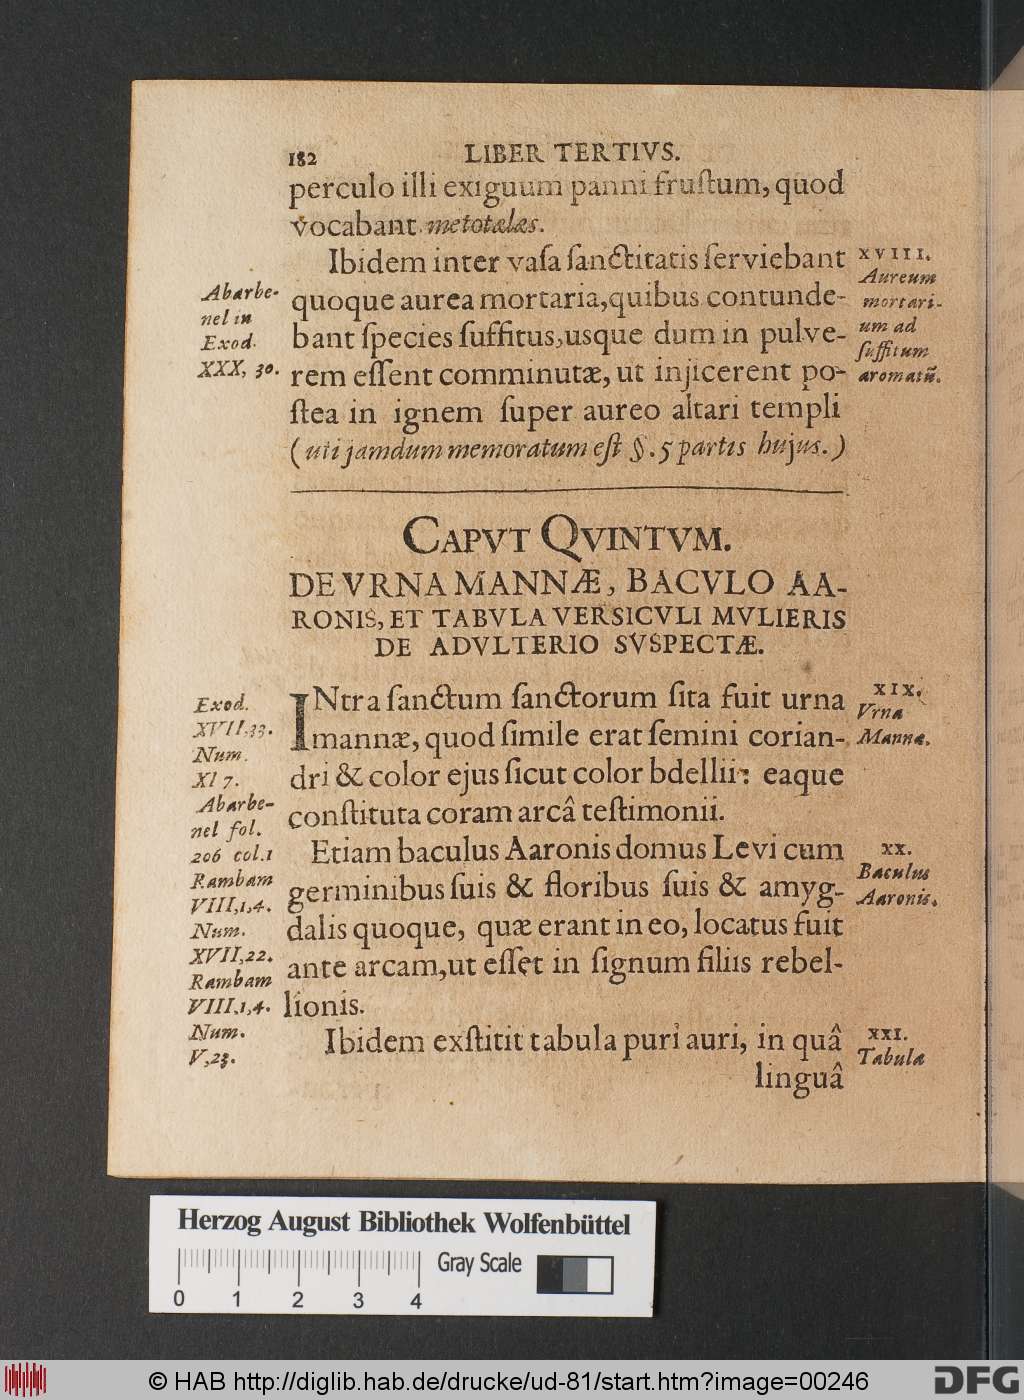 182 LIBER TERTIVS.
perculo illi exiguum panni fruſtum, quod
vocabant metotælæs.
Ibidem inter vaſa ſanctitatis ſerviebant
quoque aurea mortaria,quibus contunde-
bant ſpecies ſuffitus,usque dum in pulve-
rem eſſent comminutæ, ut injicerent po-
ſtea in ignem ſuper aureo altari templi
(uti jamdum memoratum eſt §.5 partis hujus.)
XVIII.
Aureum
mortari-
um ad
ſuffitum
aromatũ.
Abarbe-
nel in
Exod.
XXX, 30.
CAPVT QVINTVM.
DE VRNA MANNÆ, BACVLO AA-
RONIS, ET TABVLA VERSICVLI MVLIERIS
DE ADVLTERIO SVSPECTÆ.
INtra ſanctum ſanctorum ſita fuit urna
mannæ, quod ſimile erat ſemini corian-
dri & color ejus ſicut color bdellii: eaque
conſtituta coram arcâ teſtimonii.
Etiam baculus Aaronis domus Levi cum
germinibus ſuis & floribus ſuis & amyg-
dalis quoque, quæ erant in eo, locatus fuit
ante arcam,ut eſſet in ſignum filiis rebel-
lionis.
Ibidem exſtitit tabula puri auri, in quâ
linguâ
XIX.
Vrna
Mannæ.
XX.
Baculus
Aaronis.
XXI.
Tabula
Exod.
XVII,33.
Num.
XI 7.
Abarbe-
nel fol.
206 col.1
Rambam
VIII,1,4.
Num.
XVII,22.
Rambam
VIII,1,4.
Num.
V,23.
Herzog August Bibliothek Wolfenbüttel
Gray Scale
0 1 2 3 4
© HAB http://diglib.hab.de/drucke/ud-81/start.htm?image=00246
DFG